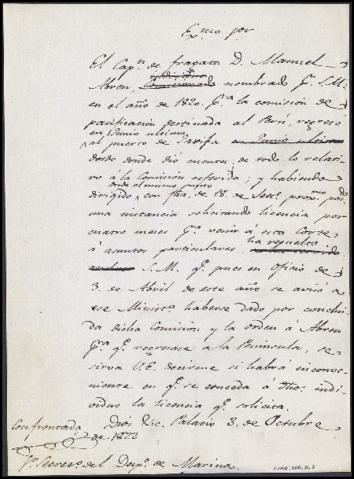 Exmo Sor
El Capn. de fragata D. Manuel
Abreu, Comisionado nombrado pr. S.M.
en el año de 1820. pa. la comision de
pacificacion destinada al Perú, regresó
en Junio ultimo
al puerto de Tarifa en Junio ultimo
donde donde dio cuenta de todo lo relati-
vo á la Comision referida; y habiendo
desde el mismo punto
dirigido con fha. de 18 de Sete. proxmo. pdo.
una instancia solicitando licencia por
cuatro meses pa. venir á esta Corte
á asuntos particulares ha resuelto
S.M. q. pues en oficio de
3. de Abril de este año se avisó a
ese Ministo. haberse dado por conclui-
da dicha Comision y la orden á Abreu
pa. q. regresase a la Peninsula, se
sirva V.E. decirme si habrá inconve-
niente en q. se conceda á dho. indi-
viduo la licencia q. solicita.
Dios &c. Palacio 3. de Octubre
de 1822
Confrontada
Sr. Secreto. del Despo. de Marina.